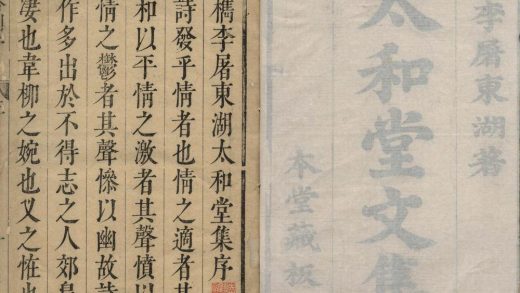 李屠東湖著
太和堂文集
本堂藏板
檇李屠東湖太和堂集序
詩發乎情者也情之適者其
和以平情之激者其聲憤以
情之鬱者其聲慘以幽故詩
作多出於不得志之人郊
凄也韋柳之婉也又之恠也